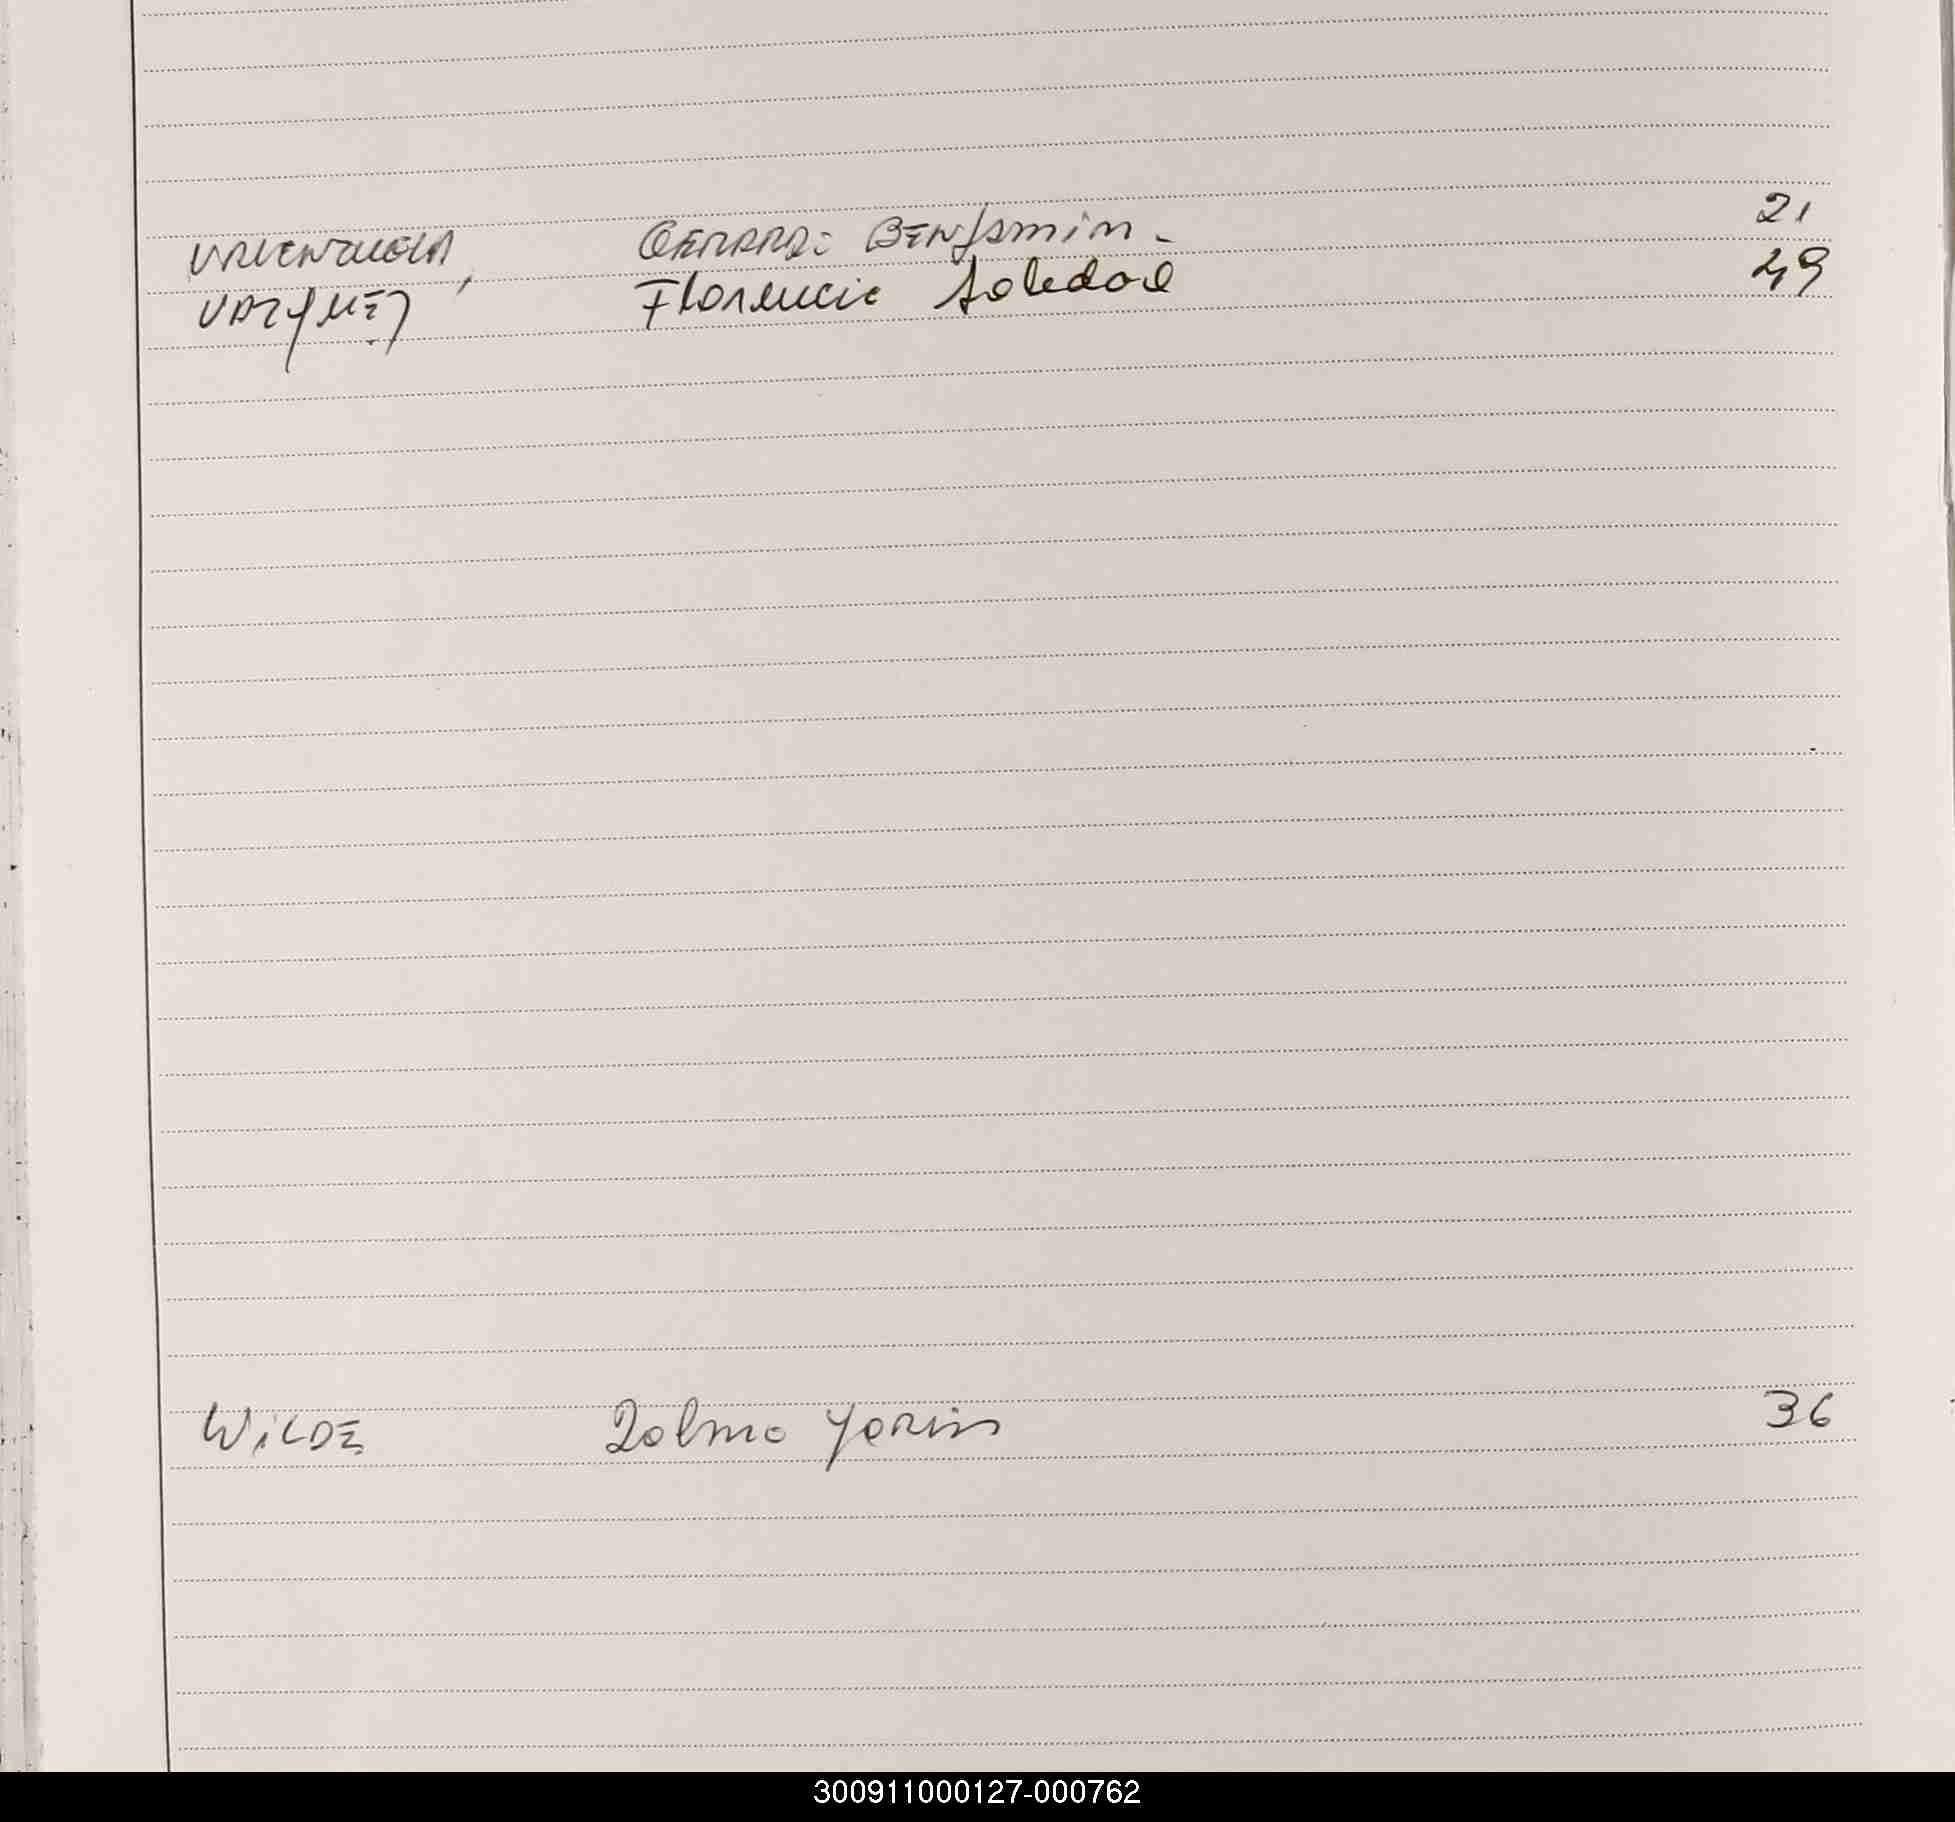 VALENZUELA, GERARDO BENJAMIN. 21
VAZQUEZ, Florencia Soledad 49
WILDE 36
300911000127-000762